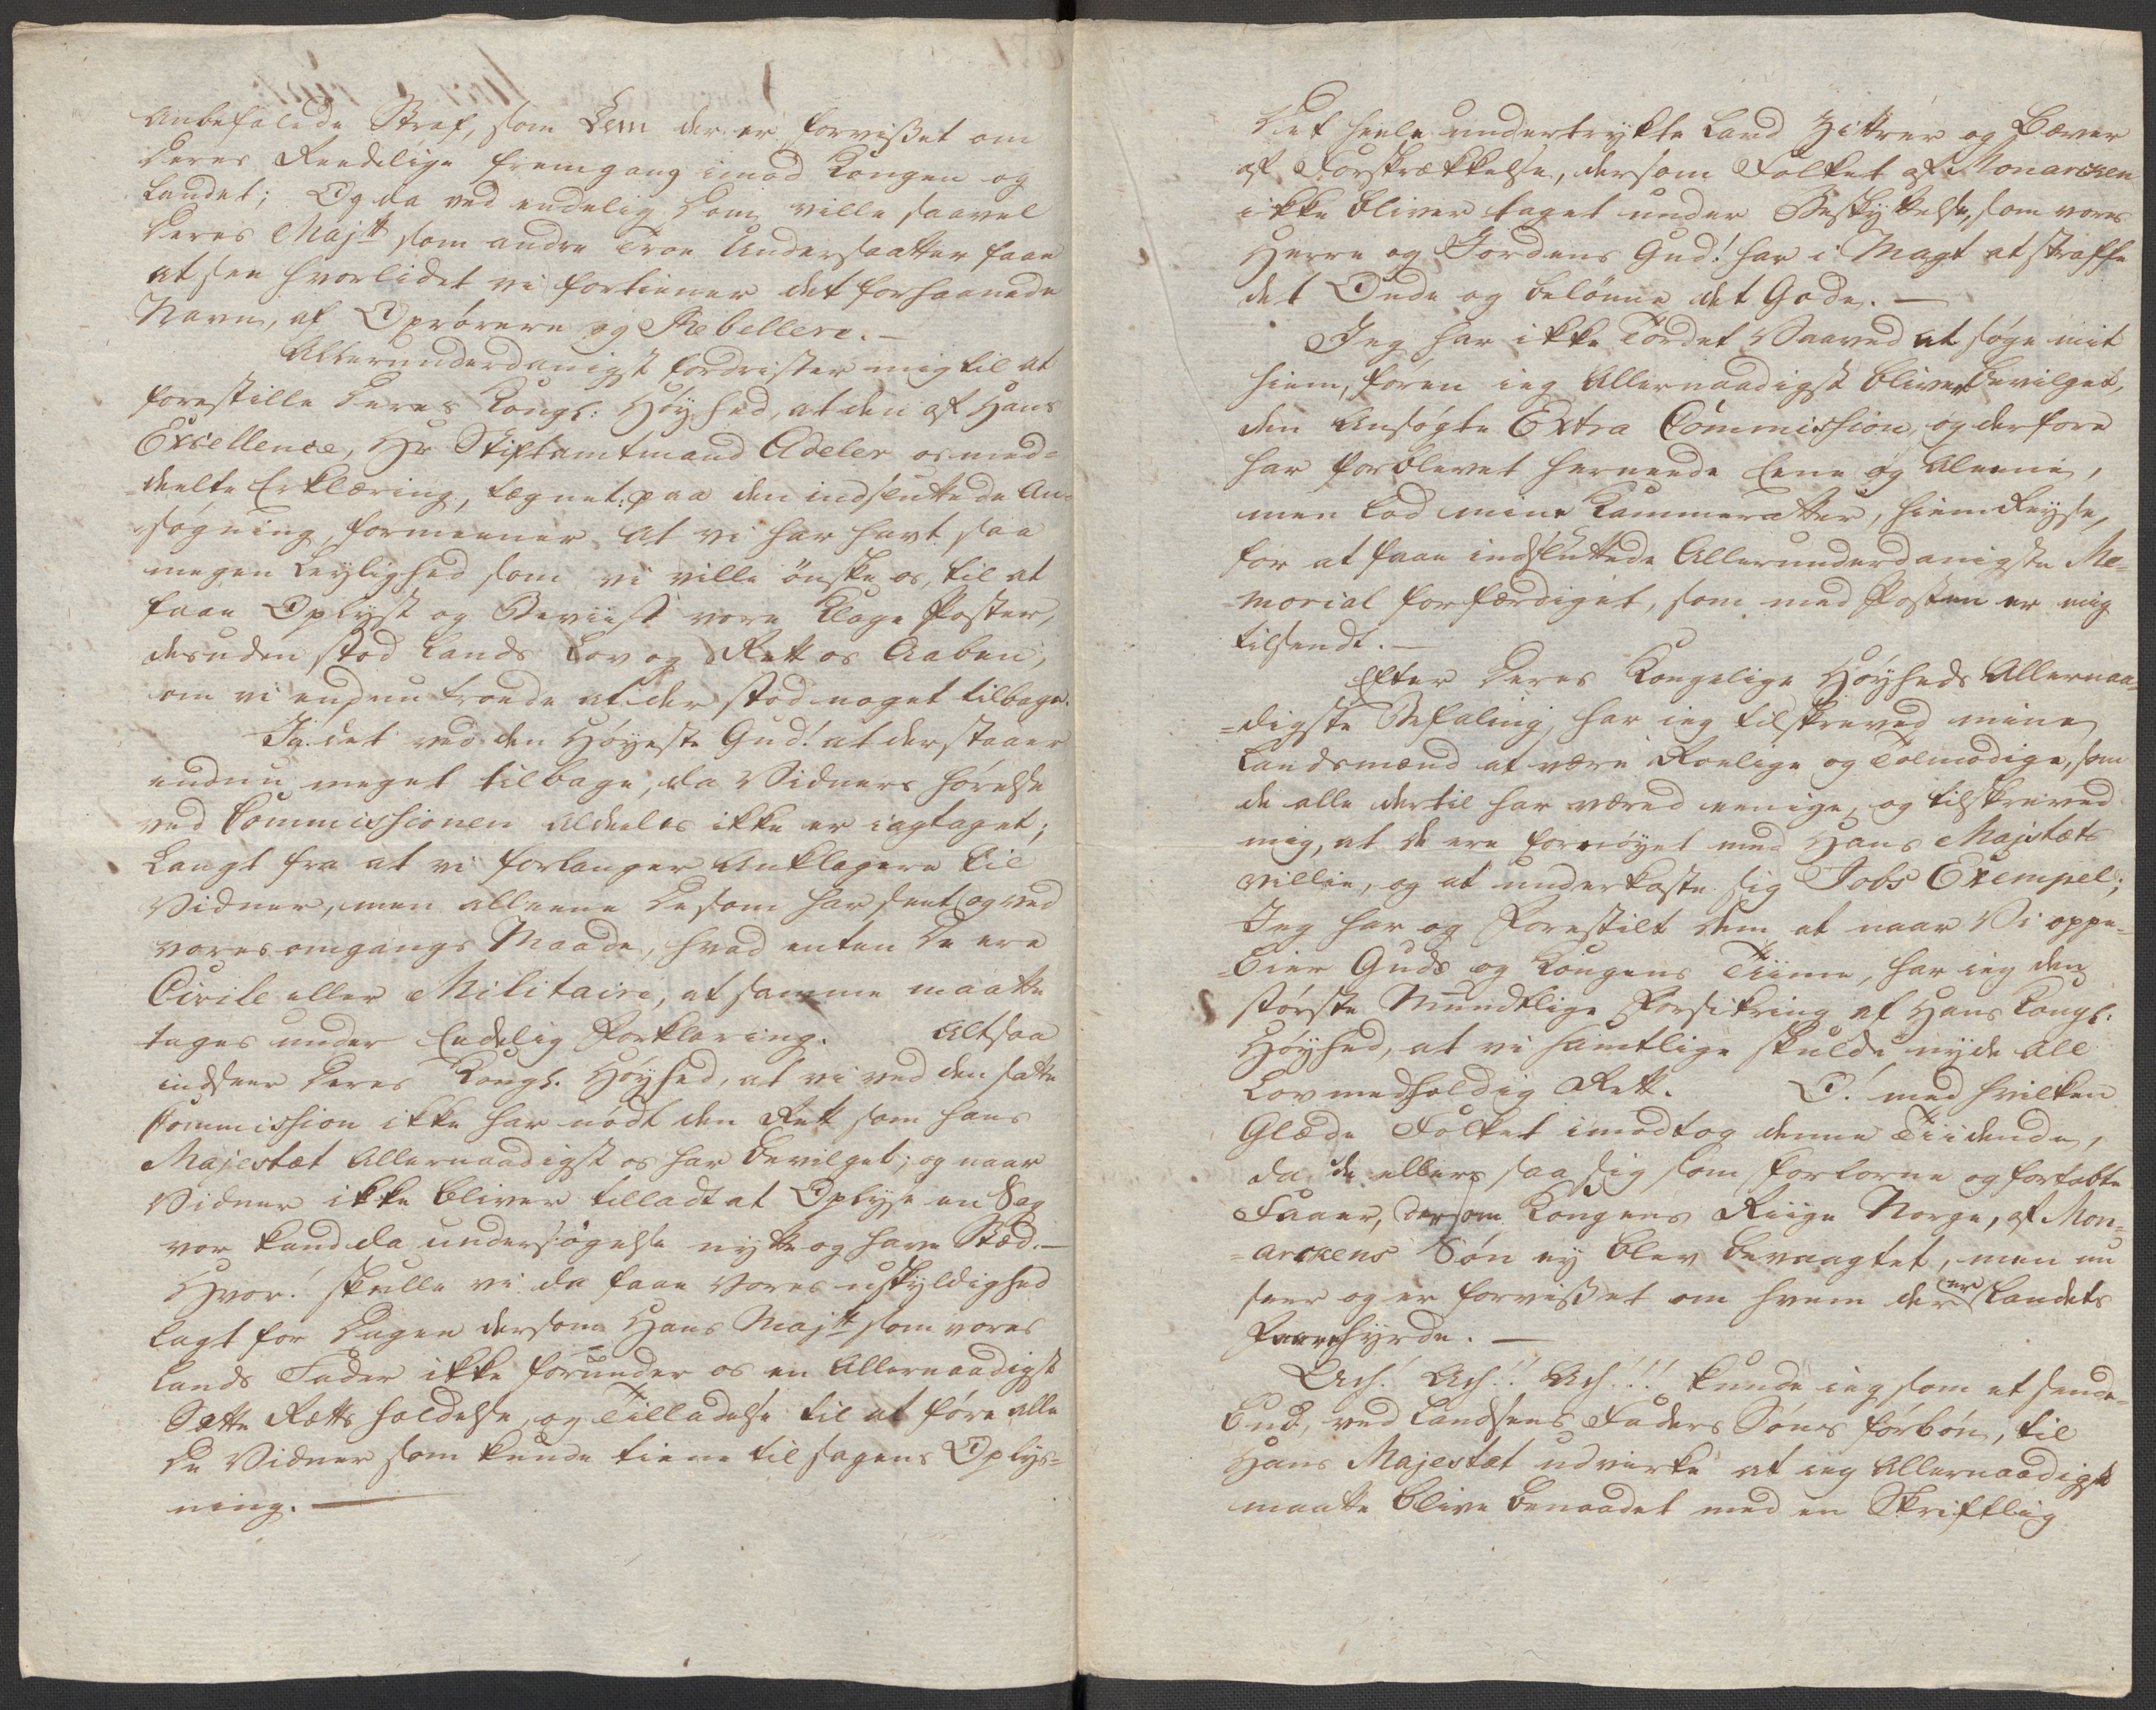 Anbefalede Straf, som Dem der er forvisset om
Deres Reedelige fremgang imod Kongen og
Landet; Og da ved endelig Dom ville saavel
Deres Majtt som andre Troe Undersaatter faae
at see hvorlidet vi fortiener det forhaanede
Navn, af Oprørere og Rebellere.-
Allerunderdanigst fordrister mig til at
forestille Deres Kongl: Høyhed, at den af Hans
Excellence, Hr Stiftamtmand Adeler os med=
deelte Erklæring, tegnet paa den indsluttede An=
søgning, formeener at vi har havt saa
megen Leylighed som vi ville ønske os, til at
faae Oplyst og Beviist vore Klage Poster,
desuden stod Lands Lov og Rett os Aaben,
om vi endnu troede at der stod noget tilbage.
Ja det ved den Høyeste Gud! at der staaer
endnu meget tilbage, da Vidners hørelse
ved Commissionen aldeeles ikke er iagtaget;
Langt fra at vi forlanger Anklagere til
Vidner, men alleene De som har seet og ved
vores omgangs Maade, hvad enten De ere
Civile eller Militaire, at samme maatte
tages under Eedelig Forklaring. Altsaa
indseer Deres Kongl. Høyhed, at vi ved den satte
Commission ikke har nødt den Rett som hans
Majestæt Allernaadigst os har bevilget; og naar
Vidner ikke bliver tilladt at Oplyse en Sag
vor kand da undersøgelse nytte og have Stæd.-
Hvor! skulle vi da faae Vores uskyldighed
lagt for Dagen dersom Hans Majtt som vores
Lands Fader ikke forunder os en Allernaadigst
Sætte Retts holdelse, og Tilladelse til at føre alle
De Vidner som kunde tiene til sagens Oplys=
ning. —
Det heele undertrykte Land Zittrer og Bæver
af Forskrækkelse, dersom Folket af Monarchen
ikke bliver taget under Beskyttelse, som vores
Herre og Jordens Gud! har i Magt at straffe
det Onde og belønne det Gode. —
Jeg har ikke Tordet Vaaved at søge mit
hiem, føren ieg Allernaadigst bliver bevilget,
den Ansøgte Extra Commission, og derfore
har forblevet herneede Eene og Aleene,
men lod mine Kammeratter, hiem Reyse,
for at faae indsluttede Allerunderdanigste Me=
=morial forfærdiget, som med Posten er mig
tilsendt. —
Efter Deres Kongelige Høyheds Allernaa=
=digste Befaling, har ieg tilskreved mine
Landsmænd at være Roelige og Tolmodige, som
de alle dertil har været eenige, og tilskreved
mig, at de ere fornøyet med Hans Majestæts
villie, og at underkaste sig Jobs Exempel;
Jeg har og Forestilt dem at naar Vi oppe=
=bier Guds og Kongens Tiime, har ieg den
største Mundtlige Forsikring af Hans Kongl:
Høyhed, at vi samtlige skulde nyde all
Lovmedholdig Rett. O! med hvilken
Glæde Folket imodtog denne Tiidende,
da de ellers saa sig som forlorne og fortabte
Faaer, dersom Kongens Riige Norge, af Mon=
=archens Søn ey blev bevaagtet, men nu
seer og er forvisset om hvem der er Landets
Faarehyrde. —
Ach! Ach!! Ach!!! kunde ieg som et sende=
bud, ved Landsens Faders Søns forbøn, til
Hans Majestæt udvirke at ieg Allernaadigst
maatte blive benaadet med en Skriftlig